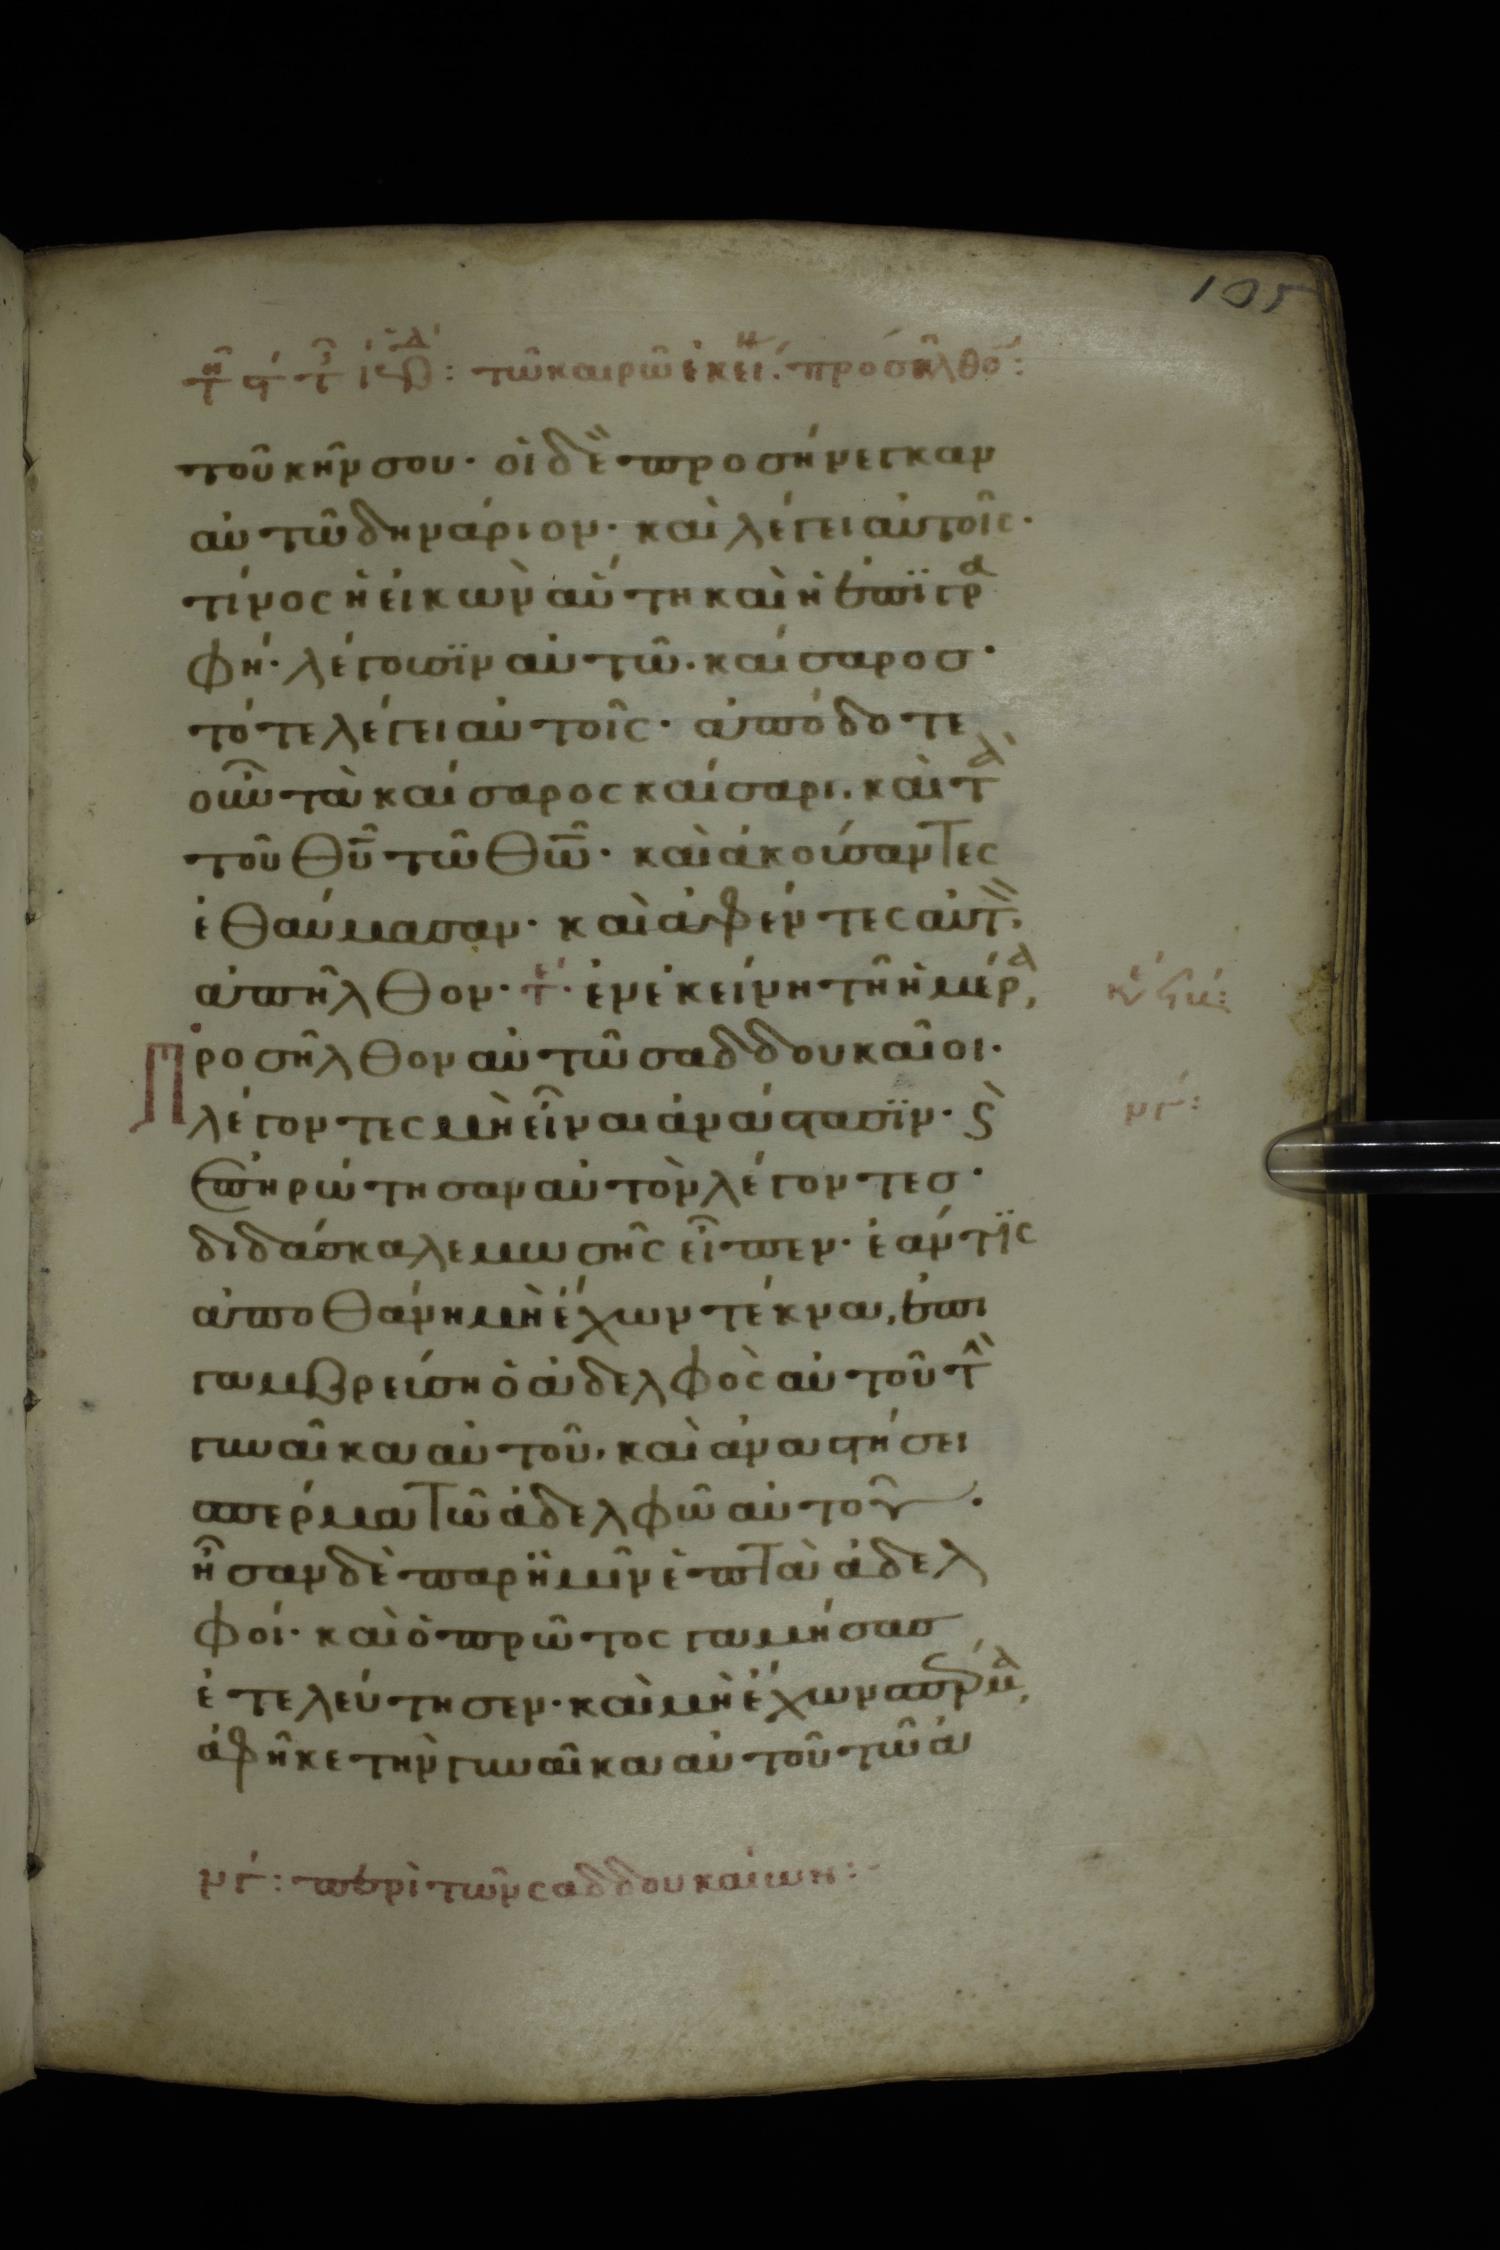 105
τῶ καιρῶ ἐκεί. προσῆλθο:
τοῦ κῆνσου· οἱ δὲ προσήνεγκαν
αὐτῶ δηνάριον· καὶ λέγει αὐτοῖς·
τίνος ἡ εἰκὼν αὕτη καὶ ἡ ἐπϊγρα
φή· λέγουσϊν αὐτῶ· καίσαροσ·
τότε λέγει αὐτοῖς· ἀπόδοτε
οὖν τὰ καίσαρος καίσαρι, καὶ τὰ
τοῦ θῡ τῶ θω̄· καὶ ἀκούσαντες
ἐθαύμασαν· καὶ ἀφέντες αὐτ
ἀπῆλθον· τέ· ἐν ἐκείνη τῆ ἡμέρα,
Προσῆλθον αὐτῶ σαδδουκαῖοι·
λέγοντες μὴ εἶναι ἀνάστασϊν· ϗ
ἐπηρώτησαν αὐτὸν λέγοντεσ·
διδάσκαλε μωσῆς εἶπεν· ἐάν τϊς
ἀποθάνη μὴ ἔχων τέκνα, ἐπι
γαμβρεύση ὁ ἀδελφὸς αὐτοῦ τὴν
γυναῖκα αὐτοῦ, καὶ ἀναστήσει
σπέρμα τῶ ἀδελφῶ αὐτοῦ·
ἦσαν δὲ παρ ἡμῖν ἑπτὰ ἀδελ
φοί· καὶ ὁ πρῶτος γαμήσασ
ἐτελεύτησεν· καὶ μὴ ἔχων σπέρμα,
ἀφῆκε τὴν γυναῖκα αὐτοῦ τῶ ἀ
νγ:
νγ: περὶ τῶν σαδδουκαίων: